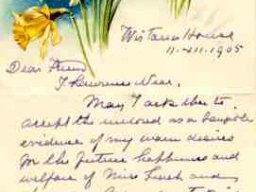 Wistaria House
11. XII. 1905
Dear
May I ask thee to
accept the enclosed as a tangible
evidence of my warm desires
for the future happiness and
welfare of Miss and